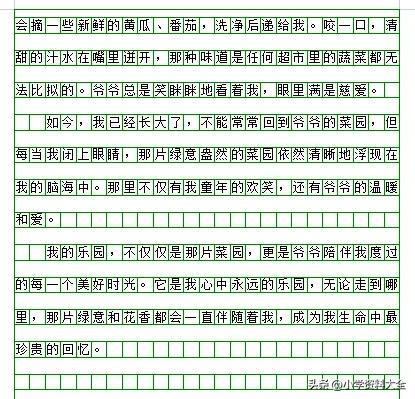 会摘一些新鲜的黄瓜、番茄，洗净后递给我。咬一口，清
甜的汁水在嘴里迸开，那种味道是任何超市里的蔬菜都无
法比拟的。爷爷总是笑眯眯地看着我，眼里满是慈爱。
如今，我已经长大了，不能常常回到爷爷的菜园，但
每当我闭上眼睛，那片绿意盎然的菜园依然清晰地浮现在
我的脑海中。那里不仅有我童年的欢笑，还有爷爷的温暖
和爱。
我的乐园，不仅仅是那片菜园，更是爷爷陪伴我度过
的每一个美好时光。它是我心中永远的乐园，无论走到哪
里，那片绿意和花香都会一直伴随着我，成为我生命中最
珍贵的回忆。
头条@小学资料大全